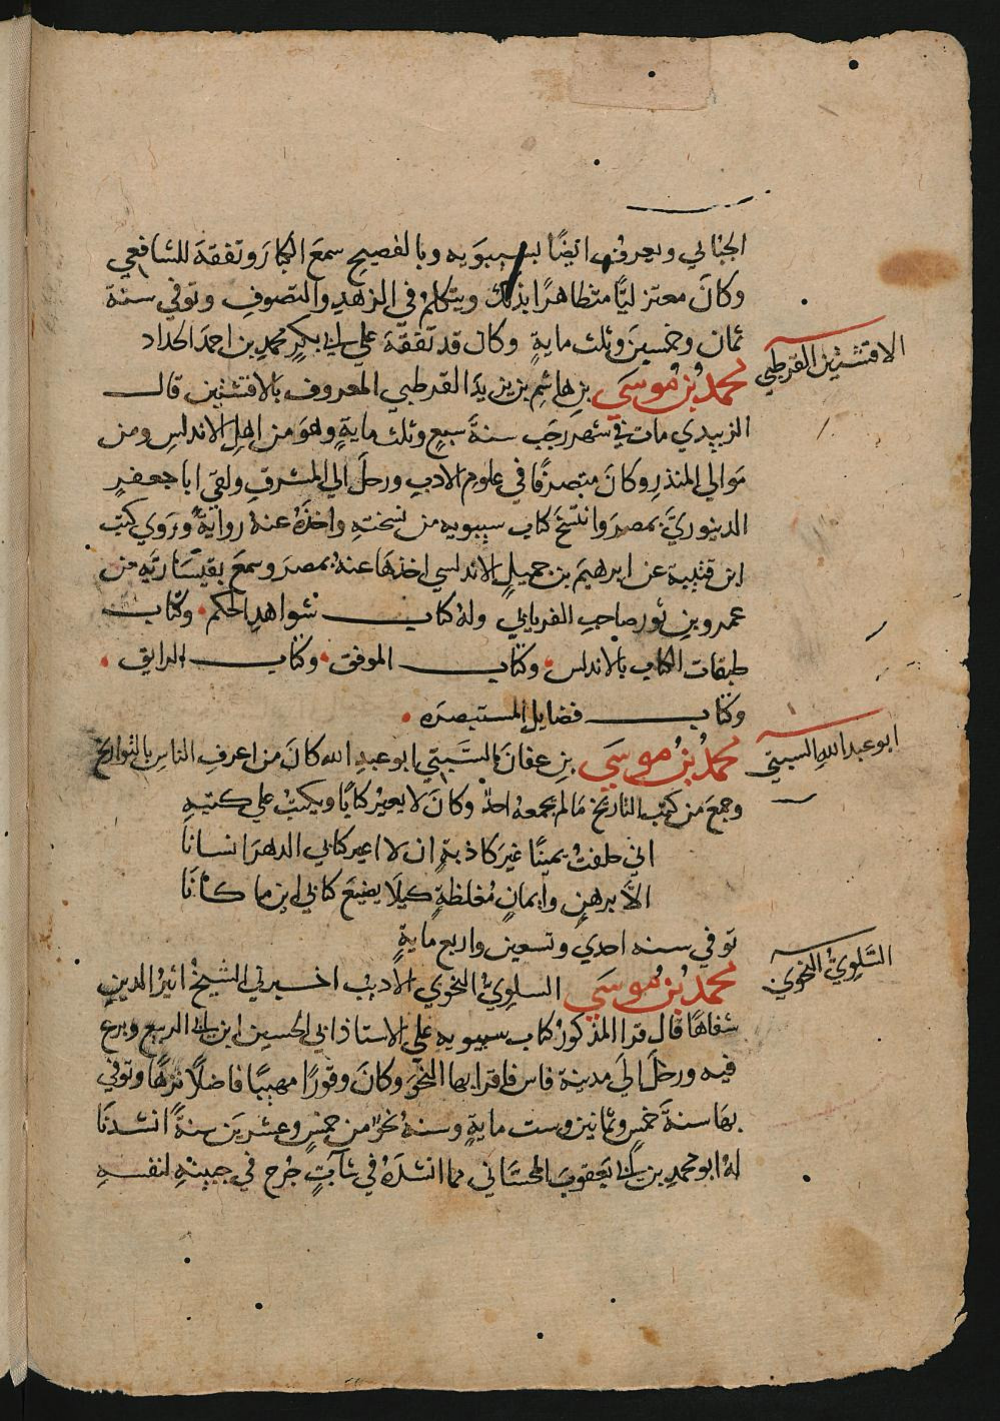 الجبالي ويعرف ايضًا بسيبويه وبالفصيح سمع الكبار وتفقه للشافعي
وكان معتزليًا متظاهرًا بذلك ويتكلم في الزهد والتصوف وتوفي سنة
ثمان وخمسين وثلث ماية وكان قد تفقه علي ابي بكر محمد بن احمد الحداد
الاقتشتين القرطبي
محمد بن موسى بن هاشم بن يزيد القرطبي المعروف بالاقتشتين قال
الزبيدي مات في شهر رجب سنة سبع وثلث ماية وهو من اهل الاندلس ومن
موالي المنذر وكان متصرفًا في علوم الادب ورحل الي المشرق ولقي ابا جعفر
الدينوري بمصر وانتسخ كتاب سيبويه من نسخته واخذه عنه رواية وروي كتب
ابن قتيبة عن ابرهيم بن جميل الاندلسي اخذها عنه بمصر وسمع بقيسارية من
عمرو بن ثور صاحب الفريابي وله كتاب شواهد الحكم وكتاب
طبقات الكتاب بالاندلس وكتاب الموفق وكتاب الرايق
وكتاب فضايل المستبصره
ابو عبد الله السبتي
محمد بن موسى بن عفان السبتي ابو عبد الله كان من اعرف الناس بالتواريخ
وجمع من كتب التاريخ ما لم يجمعه احد وكان لا يعير كتابًا ويكتب علي كتبه
اني حلفت يمينًا غير كاذبة ان لا اعير كتابي الدهر انسانا
الا برهن وايمان مغلظة كيلا يضيع كتابي اين ما كانا
توفي سنه احدي وتسعين واربع ماية
السلوي النحوي
محمد بن موسى السلوي النحوي الاديب اخبرني الشيخ اثير الدين
شفاهًا قال قرا المذكور كتاب سيبويه علي الاستاذ ابي الحسين ابن ابي الربيع وبرع
فيه ورحل الي مدينة فاس فاقرا بها النحو وكان وقورًا مهيبًا فاضلًا نزهًا وتوفي
بها سنة خمس وثمانين وست ماية وسنه نحو من خمس وعشرين سنة انشدنا
له ابو محمد بن ابي يعقوب المحساني مما انشده في شاب جرح في جبينه لنفسه